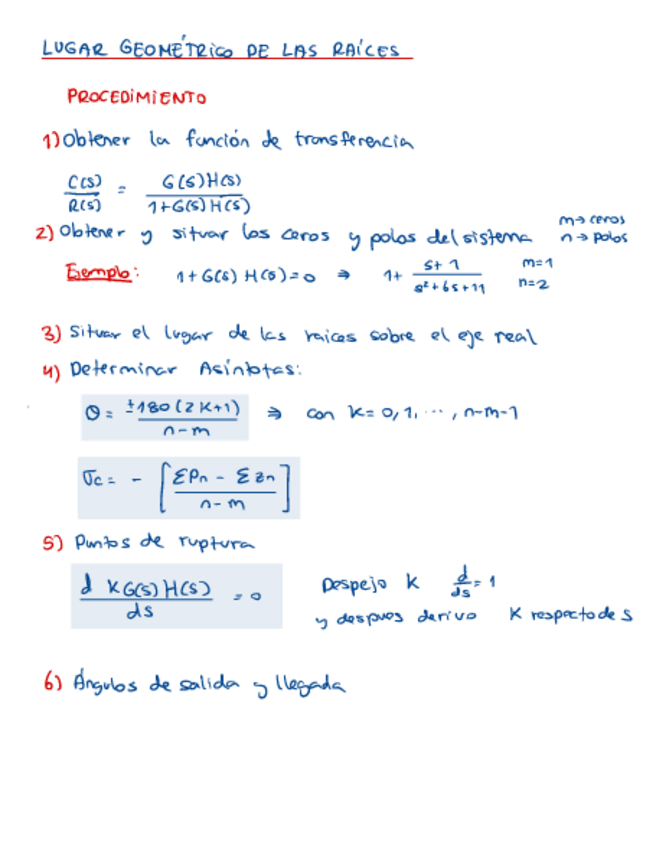 LUGAR GEOMÉTRICO DE LAS RAÍCES
PROCEDIMIENTO
1) Obtener la función de transferencia
C(S)/R(S) = G(S)H(S)/1+G(S)H(S)
2) Obtener y situar los ceros y polos del sistema m→ceros n→polos
Ejemplo: 1+G(S)H(S)=0 ⇒ 1+ S+1/s²+6s+11 m=1 n=2
3) Situar el lugar de las raices sobre el eje real
4) Determinar Asíntotas:
θ = ±180(2K+1)/n-m ⇒ con K=0,1,...,n-m-1
σc = - [ΣPn - Σzn/n-m]
5) Puntos de ruptura
d KG(S)H(S)/ds = 0 Despejo K d/ds=1
y despues derivo K respecto de S
6) Ángulos de salida y llegada